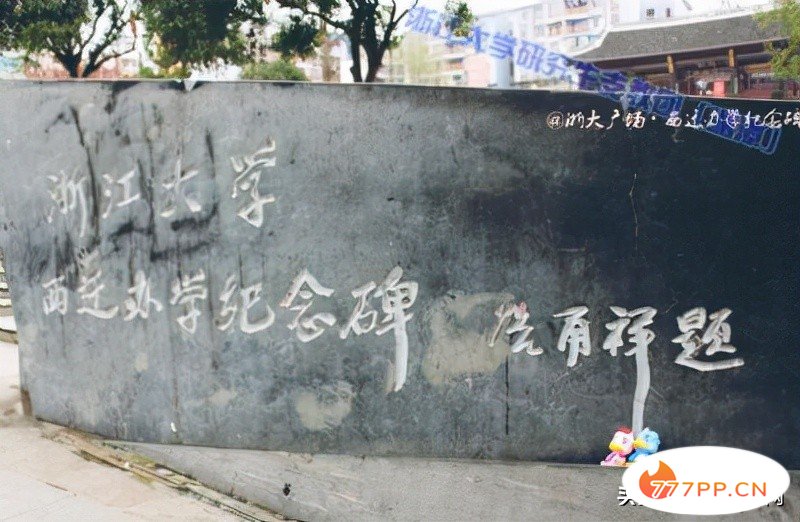 浙江大学研究生支教团
@浙大广场·西迁办学纪念碑
浙江大学
西迁办学纪念碑 祥题
777PP.CN